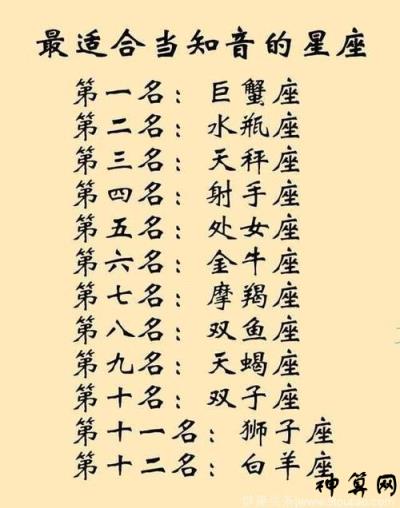 最适合当知音的星座
第一名：巨蟹座
第二名：水瓶座
第三名：天秤座
第四名：射手座
第五名：处女座
第六名：金牛座
第七名：摩羯座
第八名：双鱼座
第九名：天蝎座
第十名：双子座
第十一名：狮子座
第十二名：白羊座
神算网